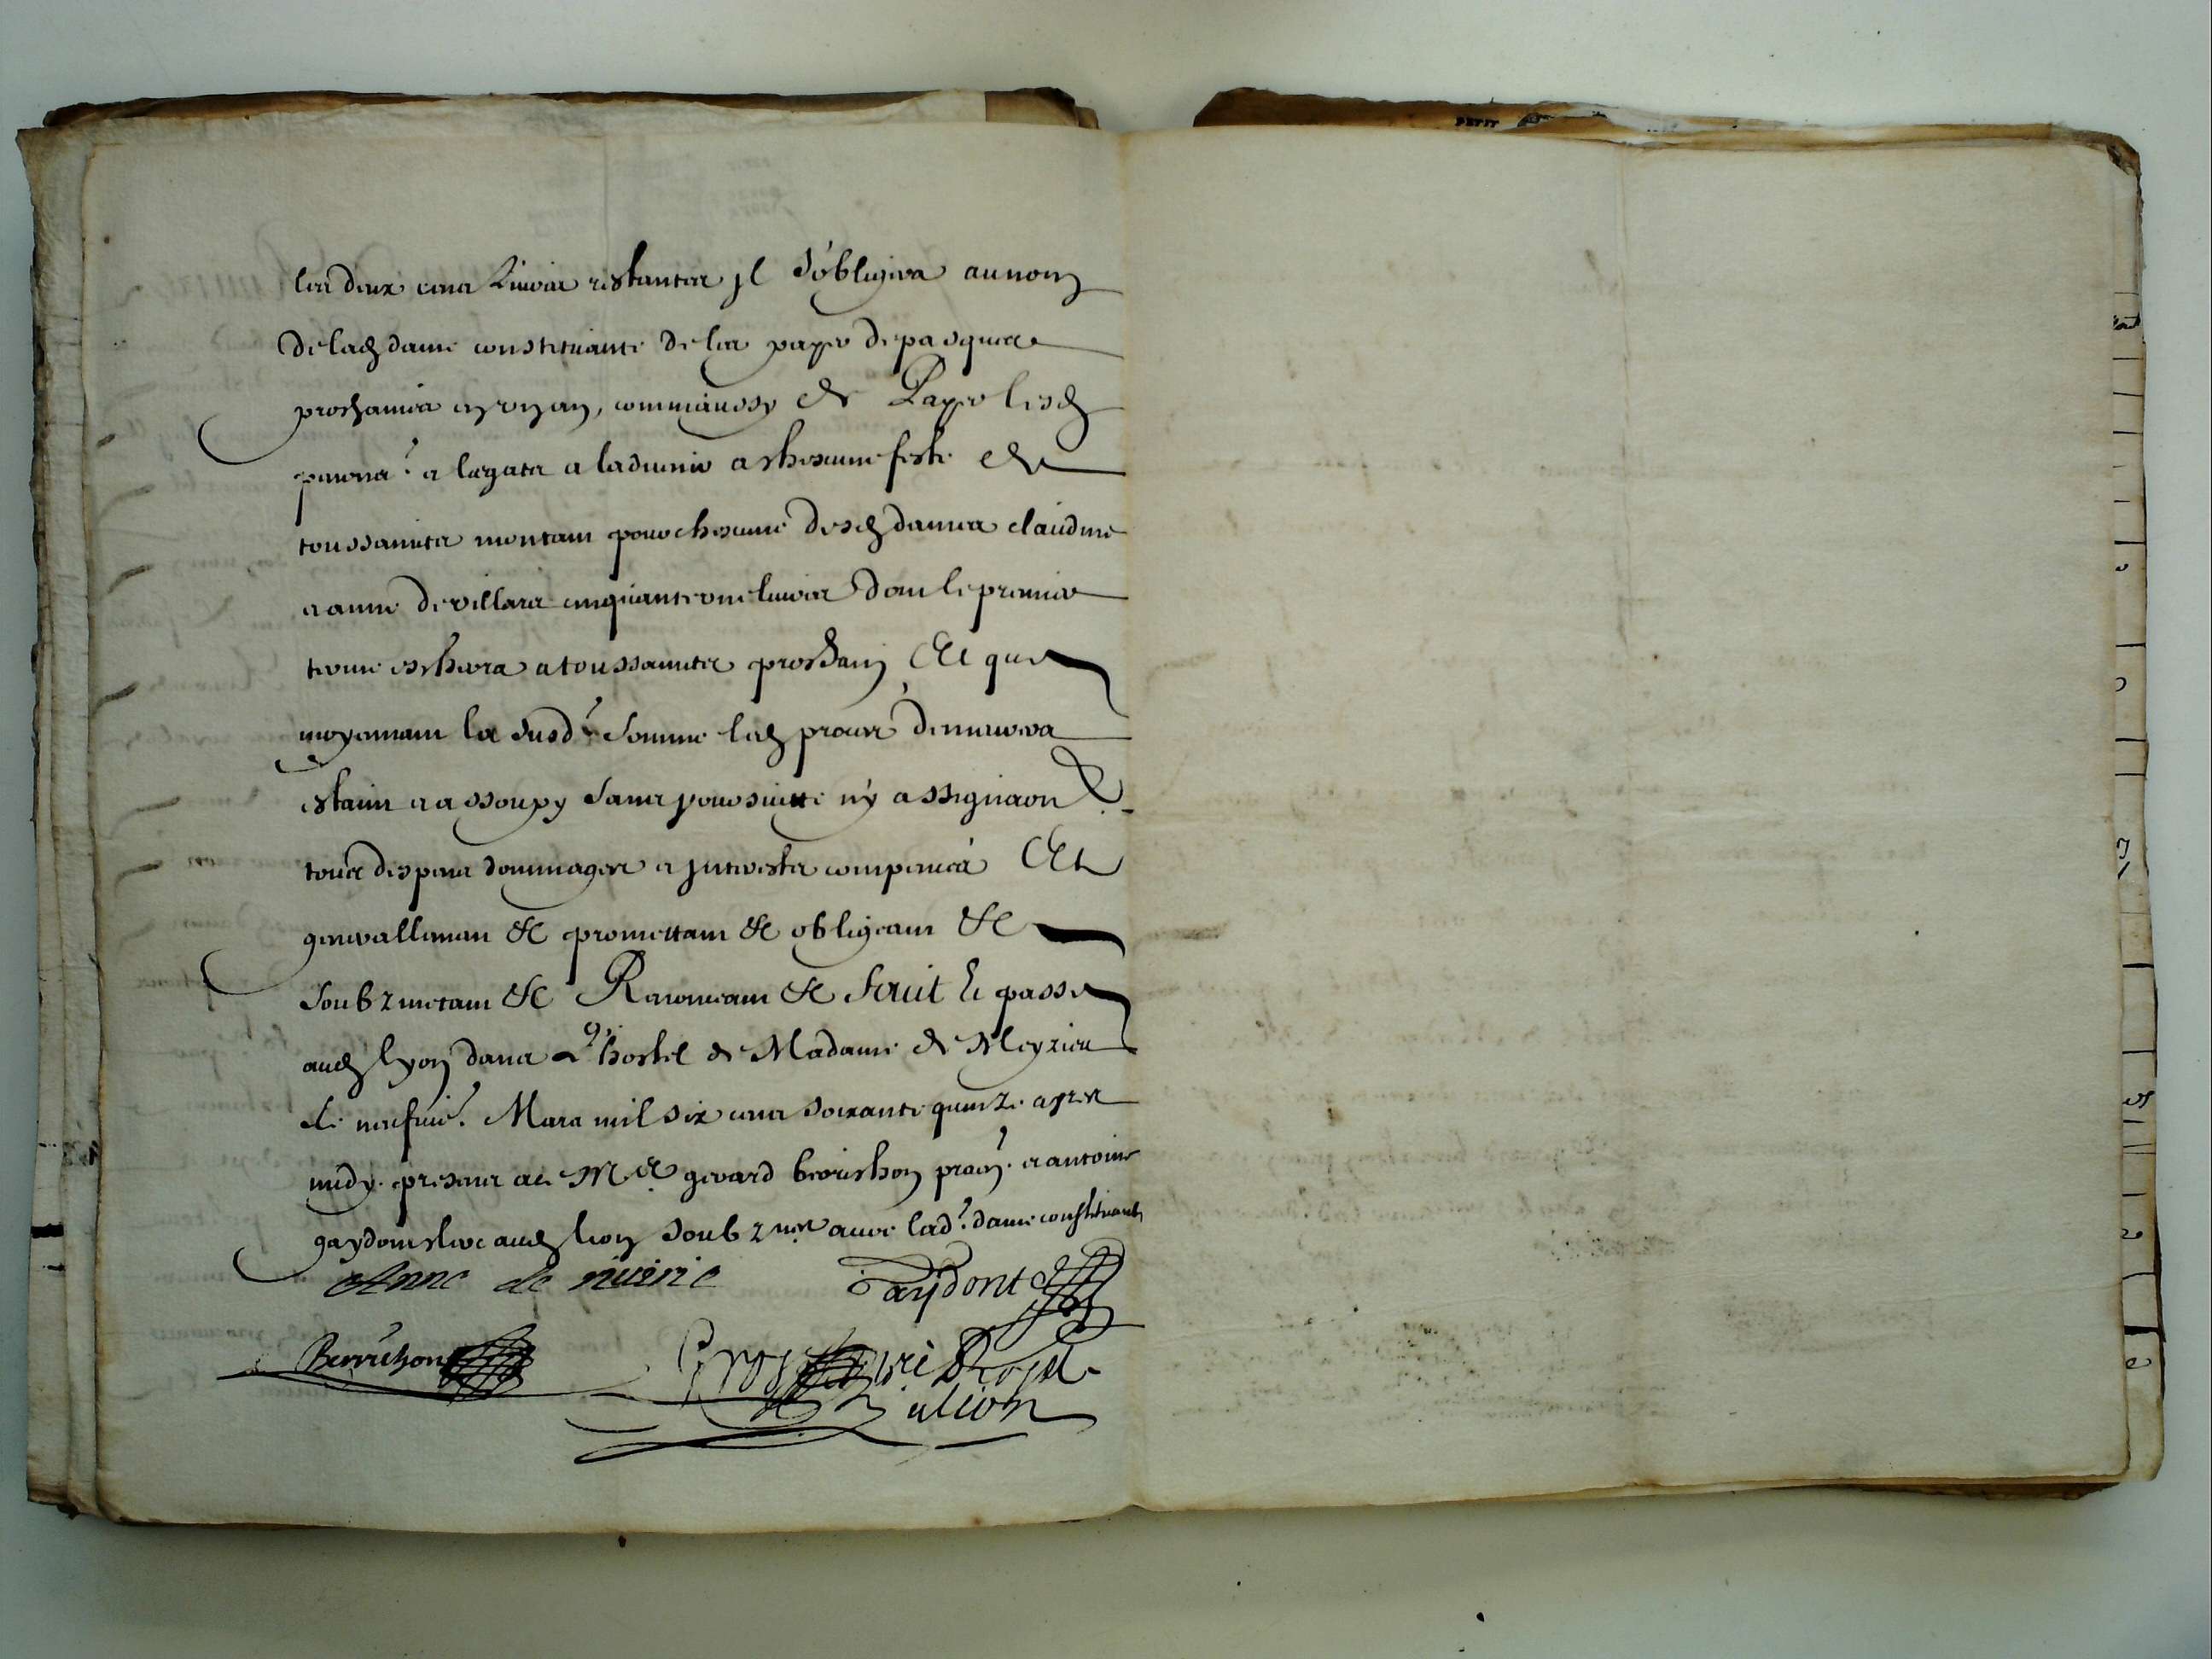 les deux cens Livres restantes jl s'obligera au nom
de lad dame constituante de les payer de pasques
prochaines en vn an, comme aussy de Payer lesd
pencõns & legats a laduenir a chescune feste de
toussaincts montant pour chescune desd dames claudine
& anne de villars cinquante vne livres dont le premier
terme escherra a toussaincts prochain Et que
moyennant la susd somme led proces demeurera
estaint et assoupy sans poursuitte ny assignaõn
tous despens dommages & jnterests compencés Et
generallement &c promettant &c obligeant &c
soubzmettant &c Renonceant &c faict & passé
aud lyon dans L'hostel de Madame de Meyzieu
le neufuie. Mars mil six cens soixante quinze apres
midy. presents ac Me gerard berrichon pracn. et antoine
gaydon clerc aud lion soubznez auec lad. dame constituante
Anne de riuirie Gaydont
Berrichon
Gros Nore Royal
a lion
PETIT